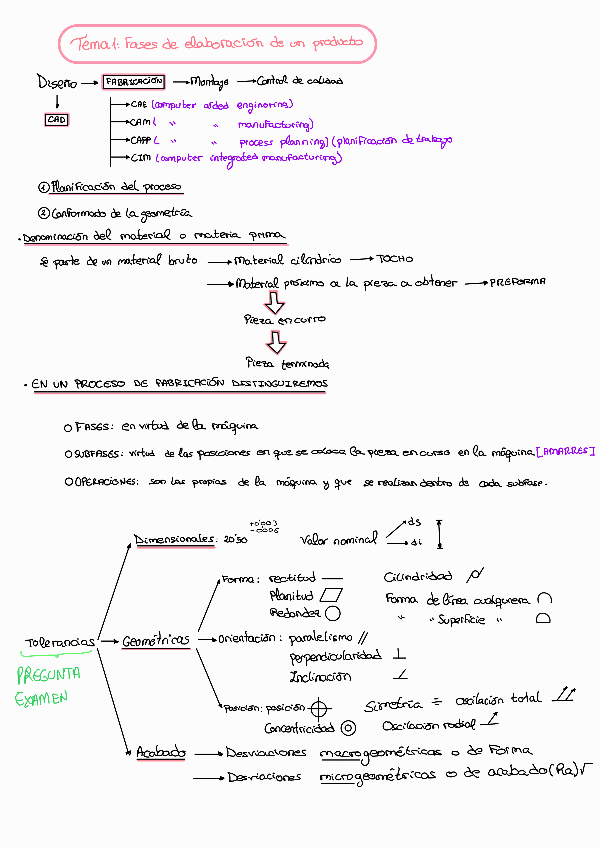 Tema1: Fases de elaboración de un producto
Diseño → FABRICACIÓN → Montaje → Control de calidad
CAD
→ CAE (computer aided enginering)
→ CAM ( " " manufacturing)
→ CAPP ( " " process planning) (planificación de trabajo
→ CIM (computer integrated manufacturing)
① Planificación del proceso
② Conformado de la geometría
· Denominación del material o materia prima
Se parte de un material bruto → Material cilíndrico → TOCHO
→ Material próximo a la pieza a obtener → PREFORMA
Pieza en curso
Pieza terminada
· EN UN PROCESO DE FABRICACIÓN DISTINGUIREMOS
O FASES: en virtud de la máquina
O SUBFASES: virtud de las posiciones en que se coloca la pieza en curso en la máquina [AMARRES]
O OPERACIONES: son las propias de la máquina y que se realizan dentro de cada subfase.
Dimensionales: 20'50 +0'003 -0'006 Valor nominal ds di
Forma: rectitud — Cilindridad ⌭
Planitud ▱ Forma de línea cualquiera ⌒
Redondez ○ " " Superficie " ⌓
Tolerancias → Geométricas → Orientación: paralelismo //
PREGUNTA EXAMEN
Perpendicularidad ⊥
Inclinación ∠
Posición: posición ⌖ Simetría ⌯ oscilación total ⌰
Concentricidad ◎ Oscilación radial ↗
Acabado → Desviaciones macrogeométricas o de Forma
→ Desviaciones microgeométricas o de acabado (Ra) √